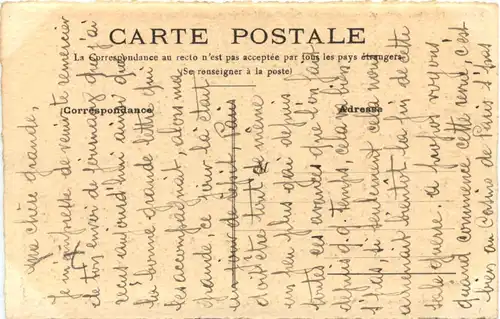 CARTE POSTALE
La Correspondance au recto n'est pas acceptée par tous les pays étrangers
(Se renseigner à la poste)
Correspondance
Adresse
Ma chère grande,
Je m'empresse de venir te remercier
de ton envoi de journaux que j'ai
reçus aujourd'hui ainsi que
ta bonne grande lettre qui
les accompagnait, alors ma
grande, ce jour là était
un jour de dépit, Paris
d'être tout de même
un peu plus gai depuis
toutes ces avances que l'on fait
depuis qq temps, cela va bien
si seulement ces nous
amenait bientôt la fin de cette
sale guerre.
quand commence cette revue, c'est
bien au Casino de Paris